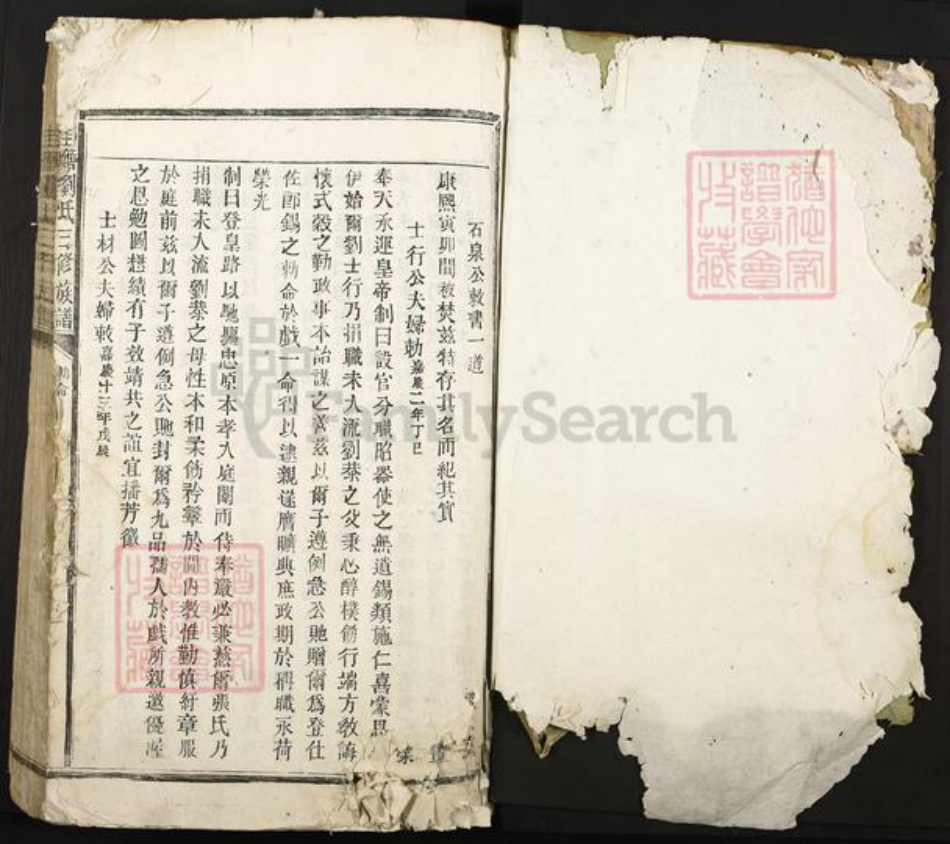 石泉公敕書一道
康熙寅卯間被焚茲特存其名而紀其實
士行公夫婦勅嘉慶二年丁巳
奉天承運皇帝制曰設官分職昭器使之無遺錫類施仁嘉蒙恩
伊始爾劉士行乃捐職未入流劉棻之父秉心醇樸飭行端方敎誨
懷式穀之勤政事本詒謀之善茲以爾子遵例急公貤贈爾爲登仕
佐郎錫之勅命於戲一命得以逮親遂膺曠典庶政期於稱職永荷
榮光
制曰登皇路以馳驅忠原本孝入庭闈而侍奉嚴必兼慈爾張氏乃
捐職未入流劉棻之母性本和柔飭矜鞶於閫内敎惟勤愼紆章服
於庭前茲以爾子遵例急公貤封爾爲九品孺人於戲所親邀優渥
之恩勉圖懋績有子效靖共之誼宜播芳徽
士材公夫婦敕嘉慶十三年戊辰
劉氏三修族譜
猶他家譜學會收藏
猶他家譜學會收藏
FamilySearch